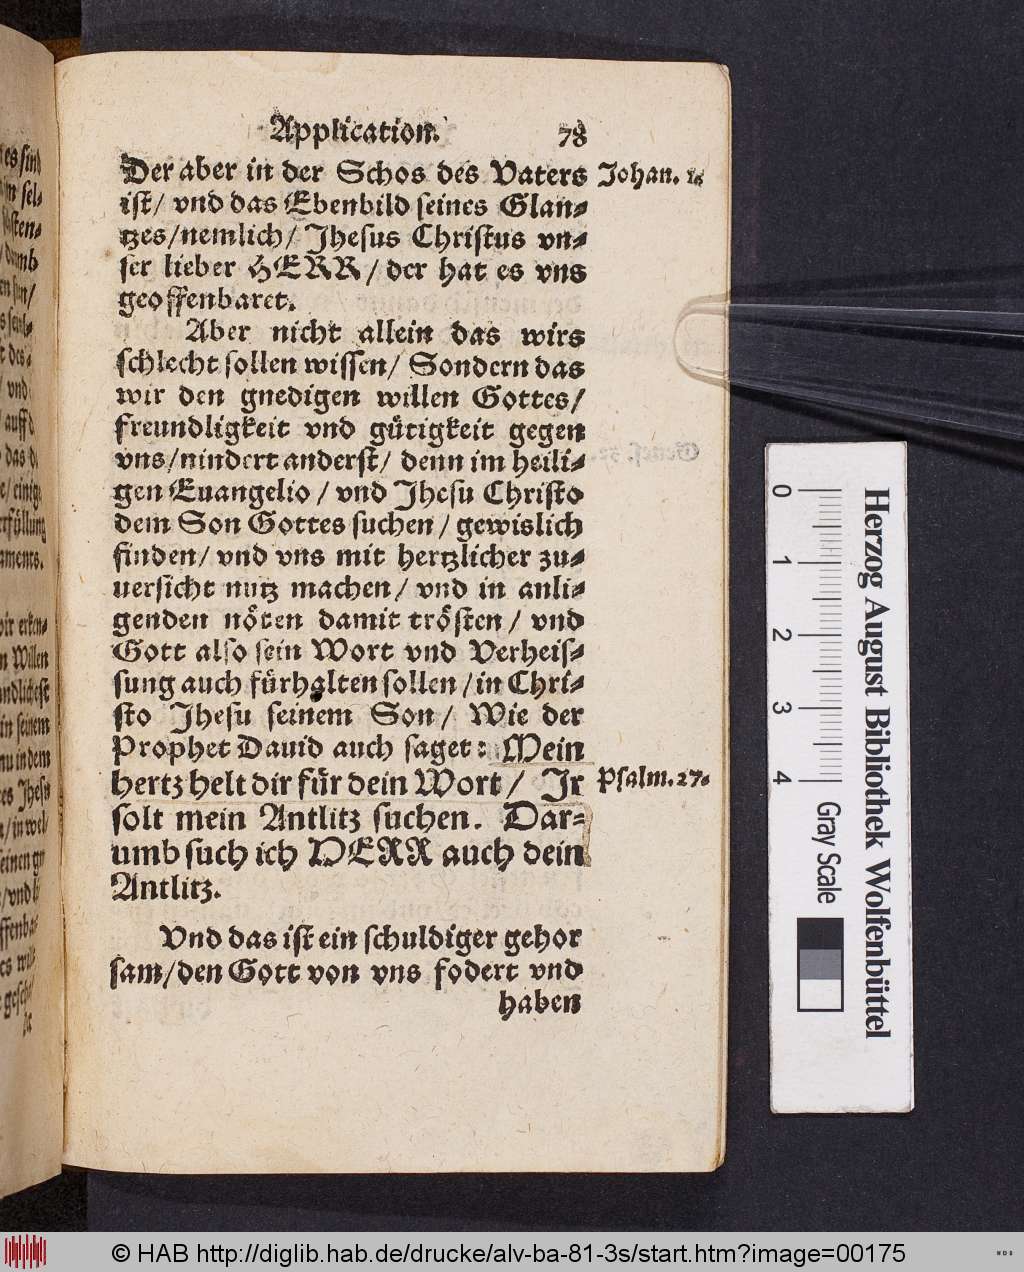 Application. 78
Der aber in der Schos des Vaters
Johan. 1.
iſt/ vnd das Ebenbild ſeines Glan⸗
tzes/nemlich/ Jheſus Chriſtus vn⸗
ſer lieber HERR/ der hat es vns
geoffenbaret.
Aber nicht allein das wirs
ſchlecht ſollen wiſſen/ Sondern das
wir den gnedigen willen Gottes/
freundligkeit vnd gütigkeit gegen
vns/nindert anderſt/ denn im heili⸗
gen Euangelio/ vnd Jheſu Chriſto
dem Son Gottes ſuchen/ gewislich
finden/ vnd vns mit hertzlicher zu⸗
uerſicht nutz machen/ vnd in anli⸗
genden nöten damit tröſten/ vnd
Gott alſo ſein Wort vnd Verheiſ⸗
ſung auch fürhalten ſollen/in Chri⸗
ſto Jheſu ſeinem Son/ Wie der
Prophet Dauid auch ſaget: Mein
hertz helt dir für dein Wort/ Jr
Pſalm. 27.
ſolt mein Antlitz ſuchen. Dar⸗
umb ſuch ich HERR auch dein
Antlitz.
Vnd das iſt ein ſchuldiger gehor
ſam/den Gott von vns fodert vnd
haben
0 1 2 3 4
Gray Scale
Herzog August Bibliothek Wolfenbüttel
© HAB http://diglib.hab.de/drucke/alv-ba-81-3s/start.htm?image=00175